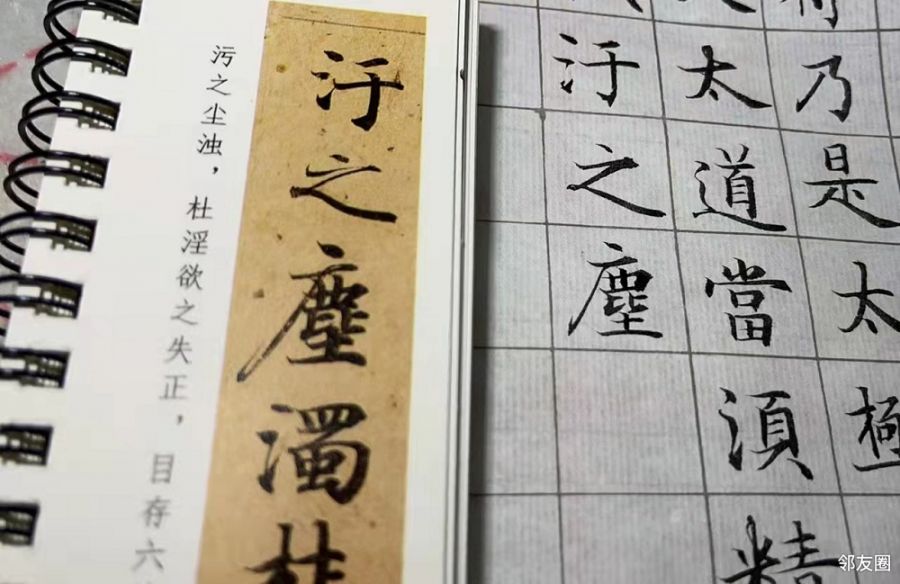 汙之塵濁杜
污之尘浊，杜淫欲之失正，目存六
乃是太極
太道當湏精
汙之塵
邻友圈